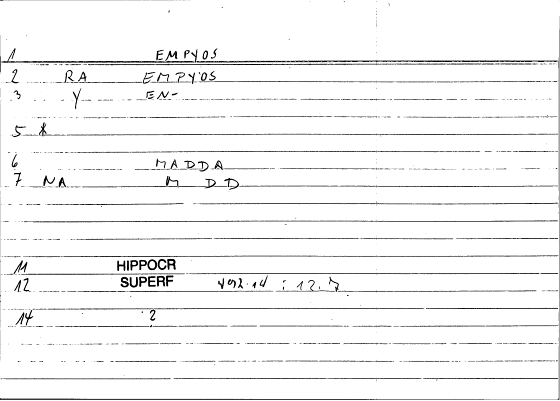 1 EMPYOS
2 RA EMPYOS
3 Y EN-
5 *
6 MADDA
7 NA M D D
11 HIPPOCR
12 SUPERF : 12.7
14 2